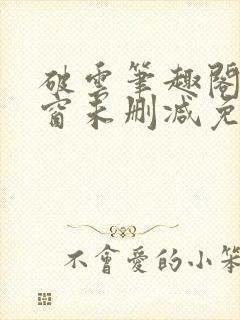 破雲筆趣閣
窗未刪減免
不會愛的小笨